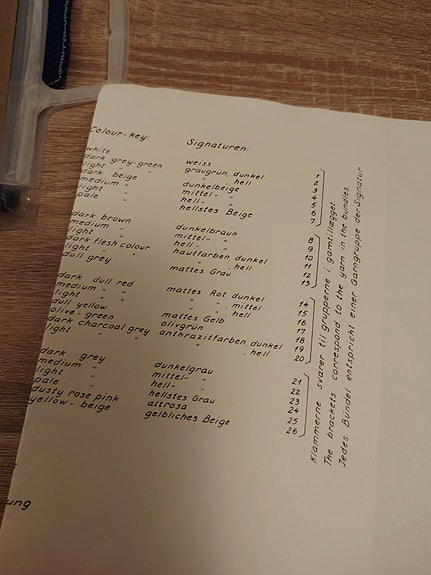 Colour-key: Signaturen:
white weiss 1
dark grey-green graugrün, dunkel 2
light " " , hell 3
dark beige dunkelbeige 4
medium " mittel- " 5
light " hell- " 6
pale " hellstes Beige 7
dark brown dunkelbraun 8
medium " mittel- " 9
light " hell- " 10
dark flesh colour hautfarben, dunkel 11
light " " " , hell 12
dull grey mattes Grau 13
dark dull red mattes Rot, dunkel 14
medium " " " " , mittel 15
light " " " " , hell 16
dull yellow mattes Gelb 17
olive-green olivgrün 18
dark charcoal grey anthrazitfarben, dunkel 19
light " " " , hell 20
dark grey dunkelgrau 21
medium " mittel- " 22
light " hell- " 23
pale " hellstes Grau 24
dusty rose pink altrosa 25
yellow-beige gelbliches Beige 26
Klammerne svarer til grupperne i garntillægget.
The brackets correspond to the yarn in the bundles.
Jedes Bündel entspricht einer Garngruppe der Signatur
ung